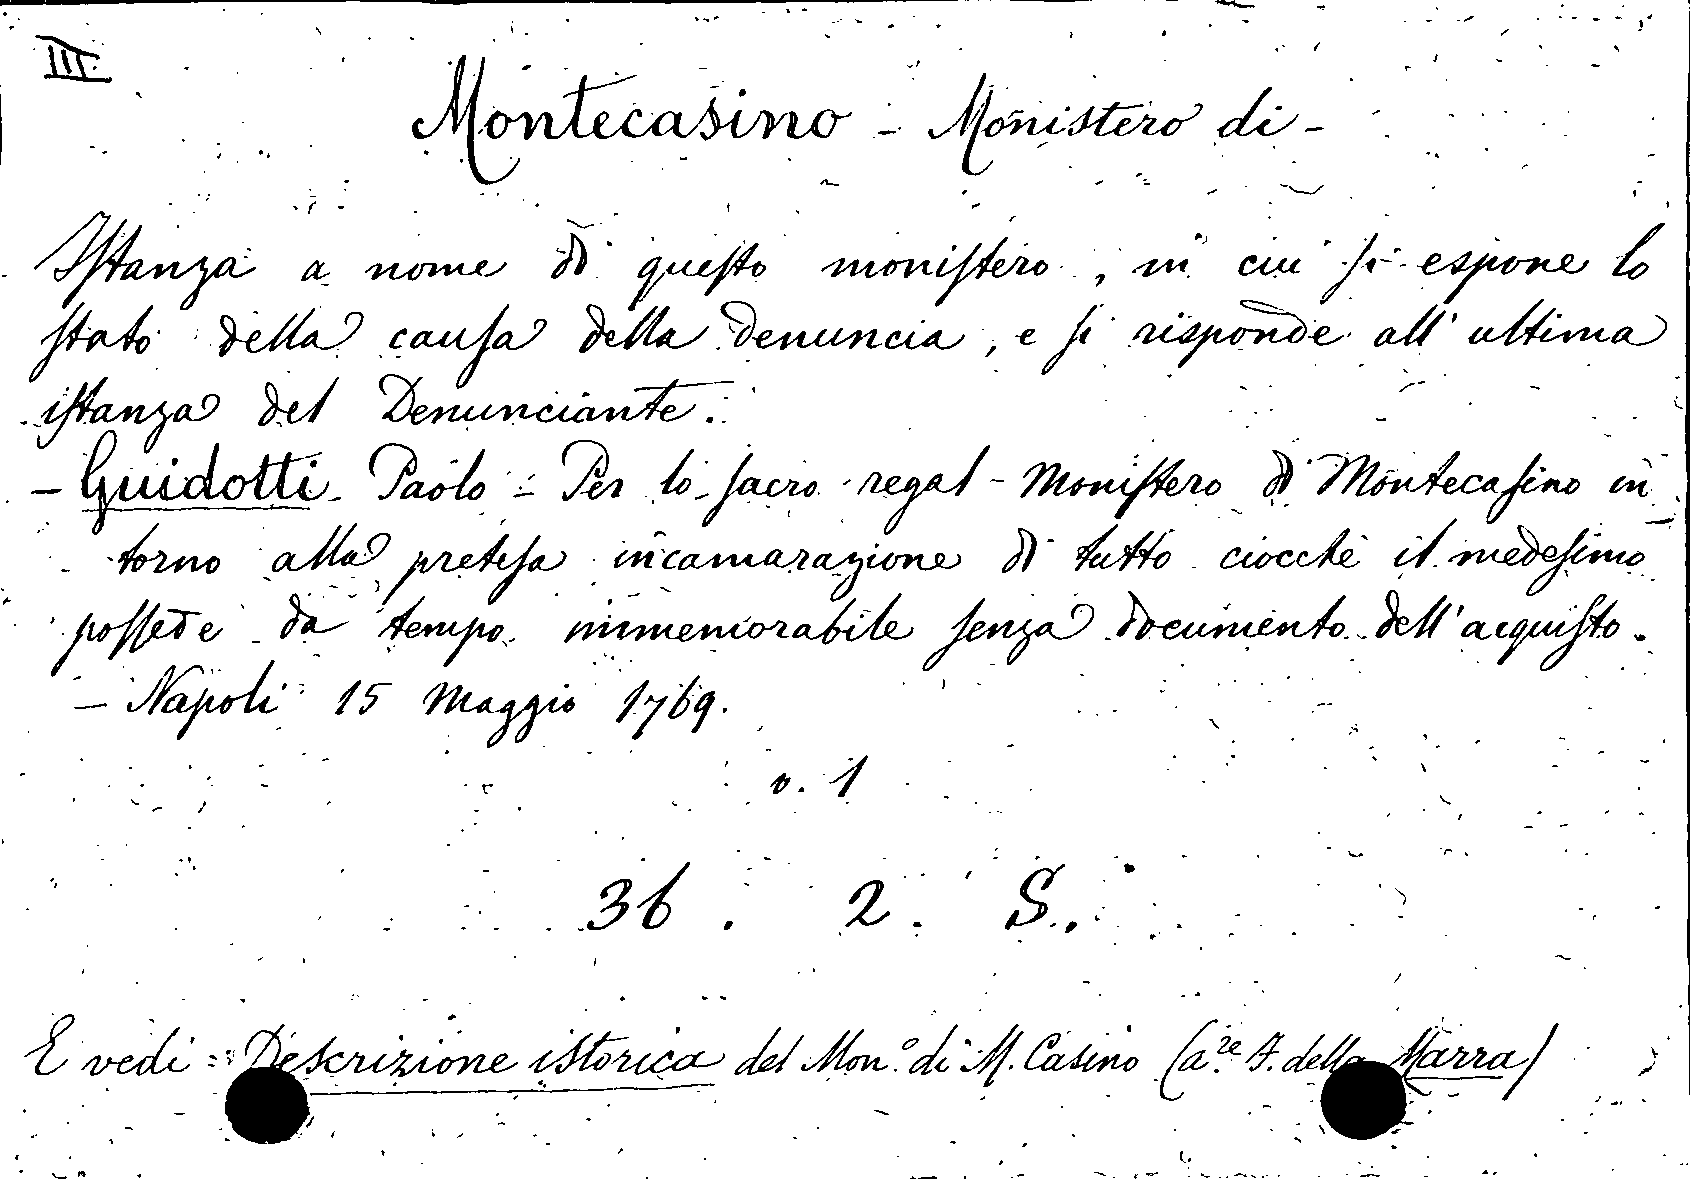 III.
Montecasino - Monistero di -
Istanza a nome di questo monistero, in cui si espone lo
stato della causa della denuncia, e si risponde all'ultima
istanza del Denunciante.
- Guidotti Paolo - Per lo sacro regal Monistero di Montecasino in
torno alla pretesa incamarazione di tutto ciocchè il medesimo
possede da tempo immemorabile senza documento dell'acquisto.
- Napoli 15 Maggio 1769.
v. 1
36. 2. S.
E vedi = Descrizione istorica del Mon.° di M. Casino (a.re F. della Marra)